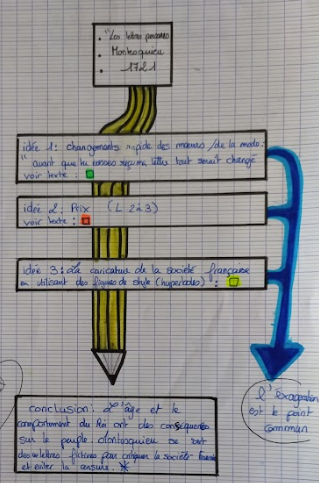 "Les lettres persanes
Montesquieu
1721
idée 1: changements rapide des mœurs / de la mode:
" avant que tu reçu ma lettre tout serait changé
voir texte :
idée 2: Prix (L 2 à 3)
voir texte :
idée 3: La caricature de la société française
en utilisant des figures de style (hyperboles) :
l'exagération
est le point
commun
conclusion: L'âge et le
comportement du Roi ont des conséquences
sur le peuple Montesquieu se sert
des lettres fictives pour critiquer la société
et éviter la censure. *